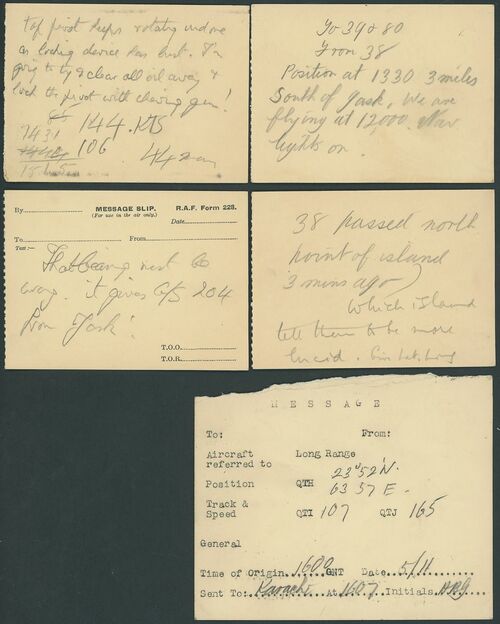 Taf pivot keeps rotating undone
as locking device has bust. I'm
going to try & clear all oil away &
lock the pivot with chewing gum!
7431 144.KTS
106
44
To 39 & 80
From 38
Position at 1330 3 miles
South of Jask, We are
flying at 12,000 Nav
lights on.
By MESSAGE SLIP. R.A.F. Form 228.
(For use in the air only.)
Date
To From
Text :—
That bearing must be
wrong. it gives G/S 204
from Jask!
T.O.O.
T.O.R.
38 passed north
point of island
3 mins ago
Which island
tell them to be more
lucid.
MESSAGE
To: From:
Aircraft Long Range
referred to
Position QTH 23°52'N.
63 57 E.
Track & QTI 107 QTJ 165
Speed
General
Time of Origin 1600 GMT Date 5/11
Sent To: Karachi At 1607 Initials